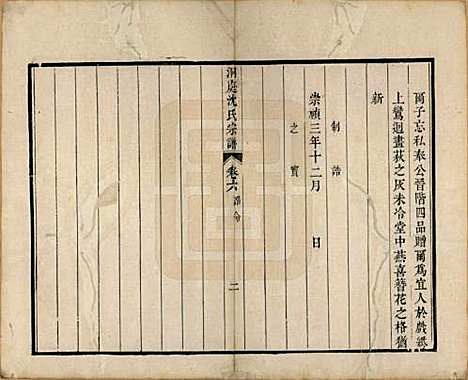 爾子忘私奉公晉階四品贈爾為宜人於戲紙
上鸞迴畫荻之灰未冷堂中燕喜簪花之格猶
新
制誥
崇禎三年十二月　日
之寶
洞庭沈氏宗譜
卷六 誥命 二